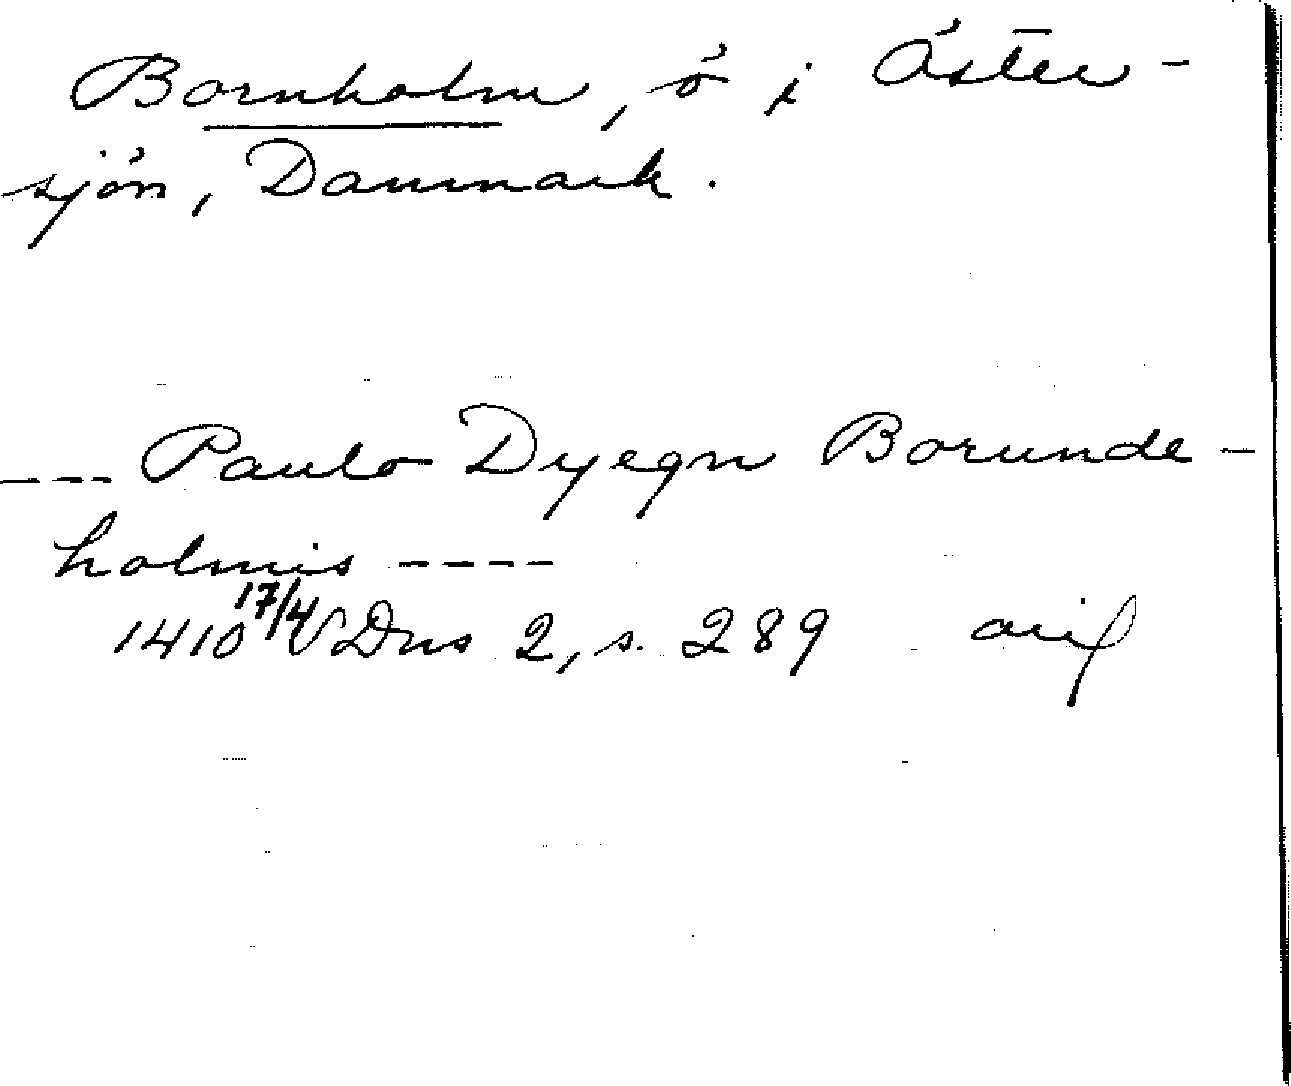 Bornholm, ö i Öster-
sjön, Danmark.
--- Paulo Dyegn Borunde-
holmis ----
1410 17/4 V Dns 2, s. 289 orig